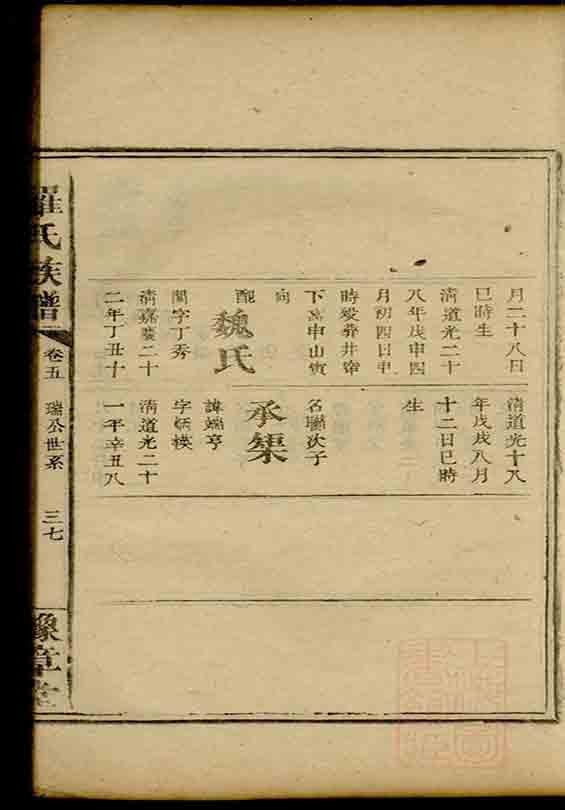 月二十八日
巳時生
清道光二十
八年戊申四
月初四日申
時歿葬井窜
下窩申山寅
向
配
魏氏
閨字丁秀
清嘉慶二十
二年丁丑十
清道光十八
年戊戌八月
十二日巳時
生
名聯次子
承榘
諱端亨
字炳模
清道光二十
一年辛丑八
羅氏族譜
卷五
瑞公世系
三七
豫章堂